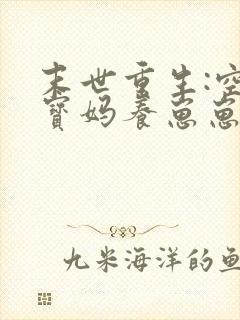 末世重生:空
寶妈养崽崽
九米海洋的鱼